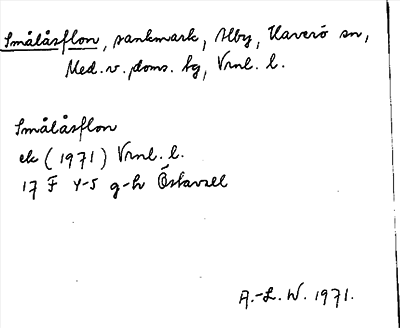 Smålåsflon, sankmark, Alby, Haverö sn,
Med. v. doms. hg, Vrnl. l.
Smålåsflon
ek (1971) Vrnl. l.
17 F 4-5 g-h Östavall
A.-L. W. 1971.